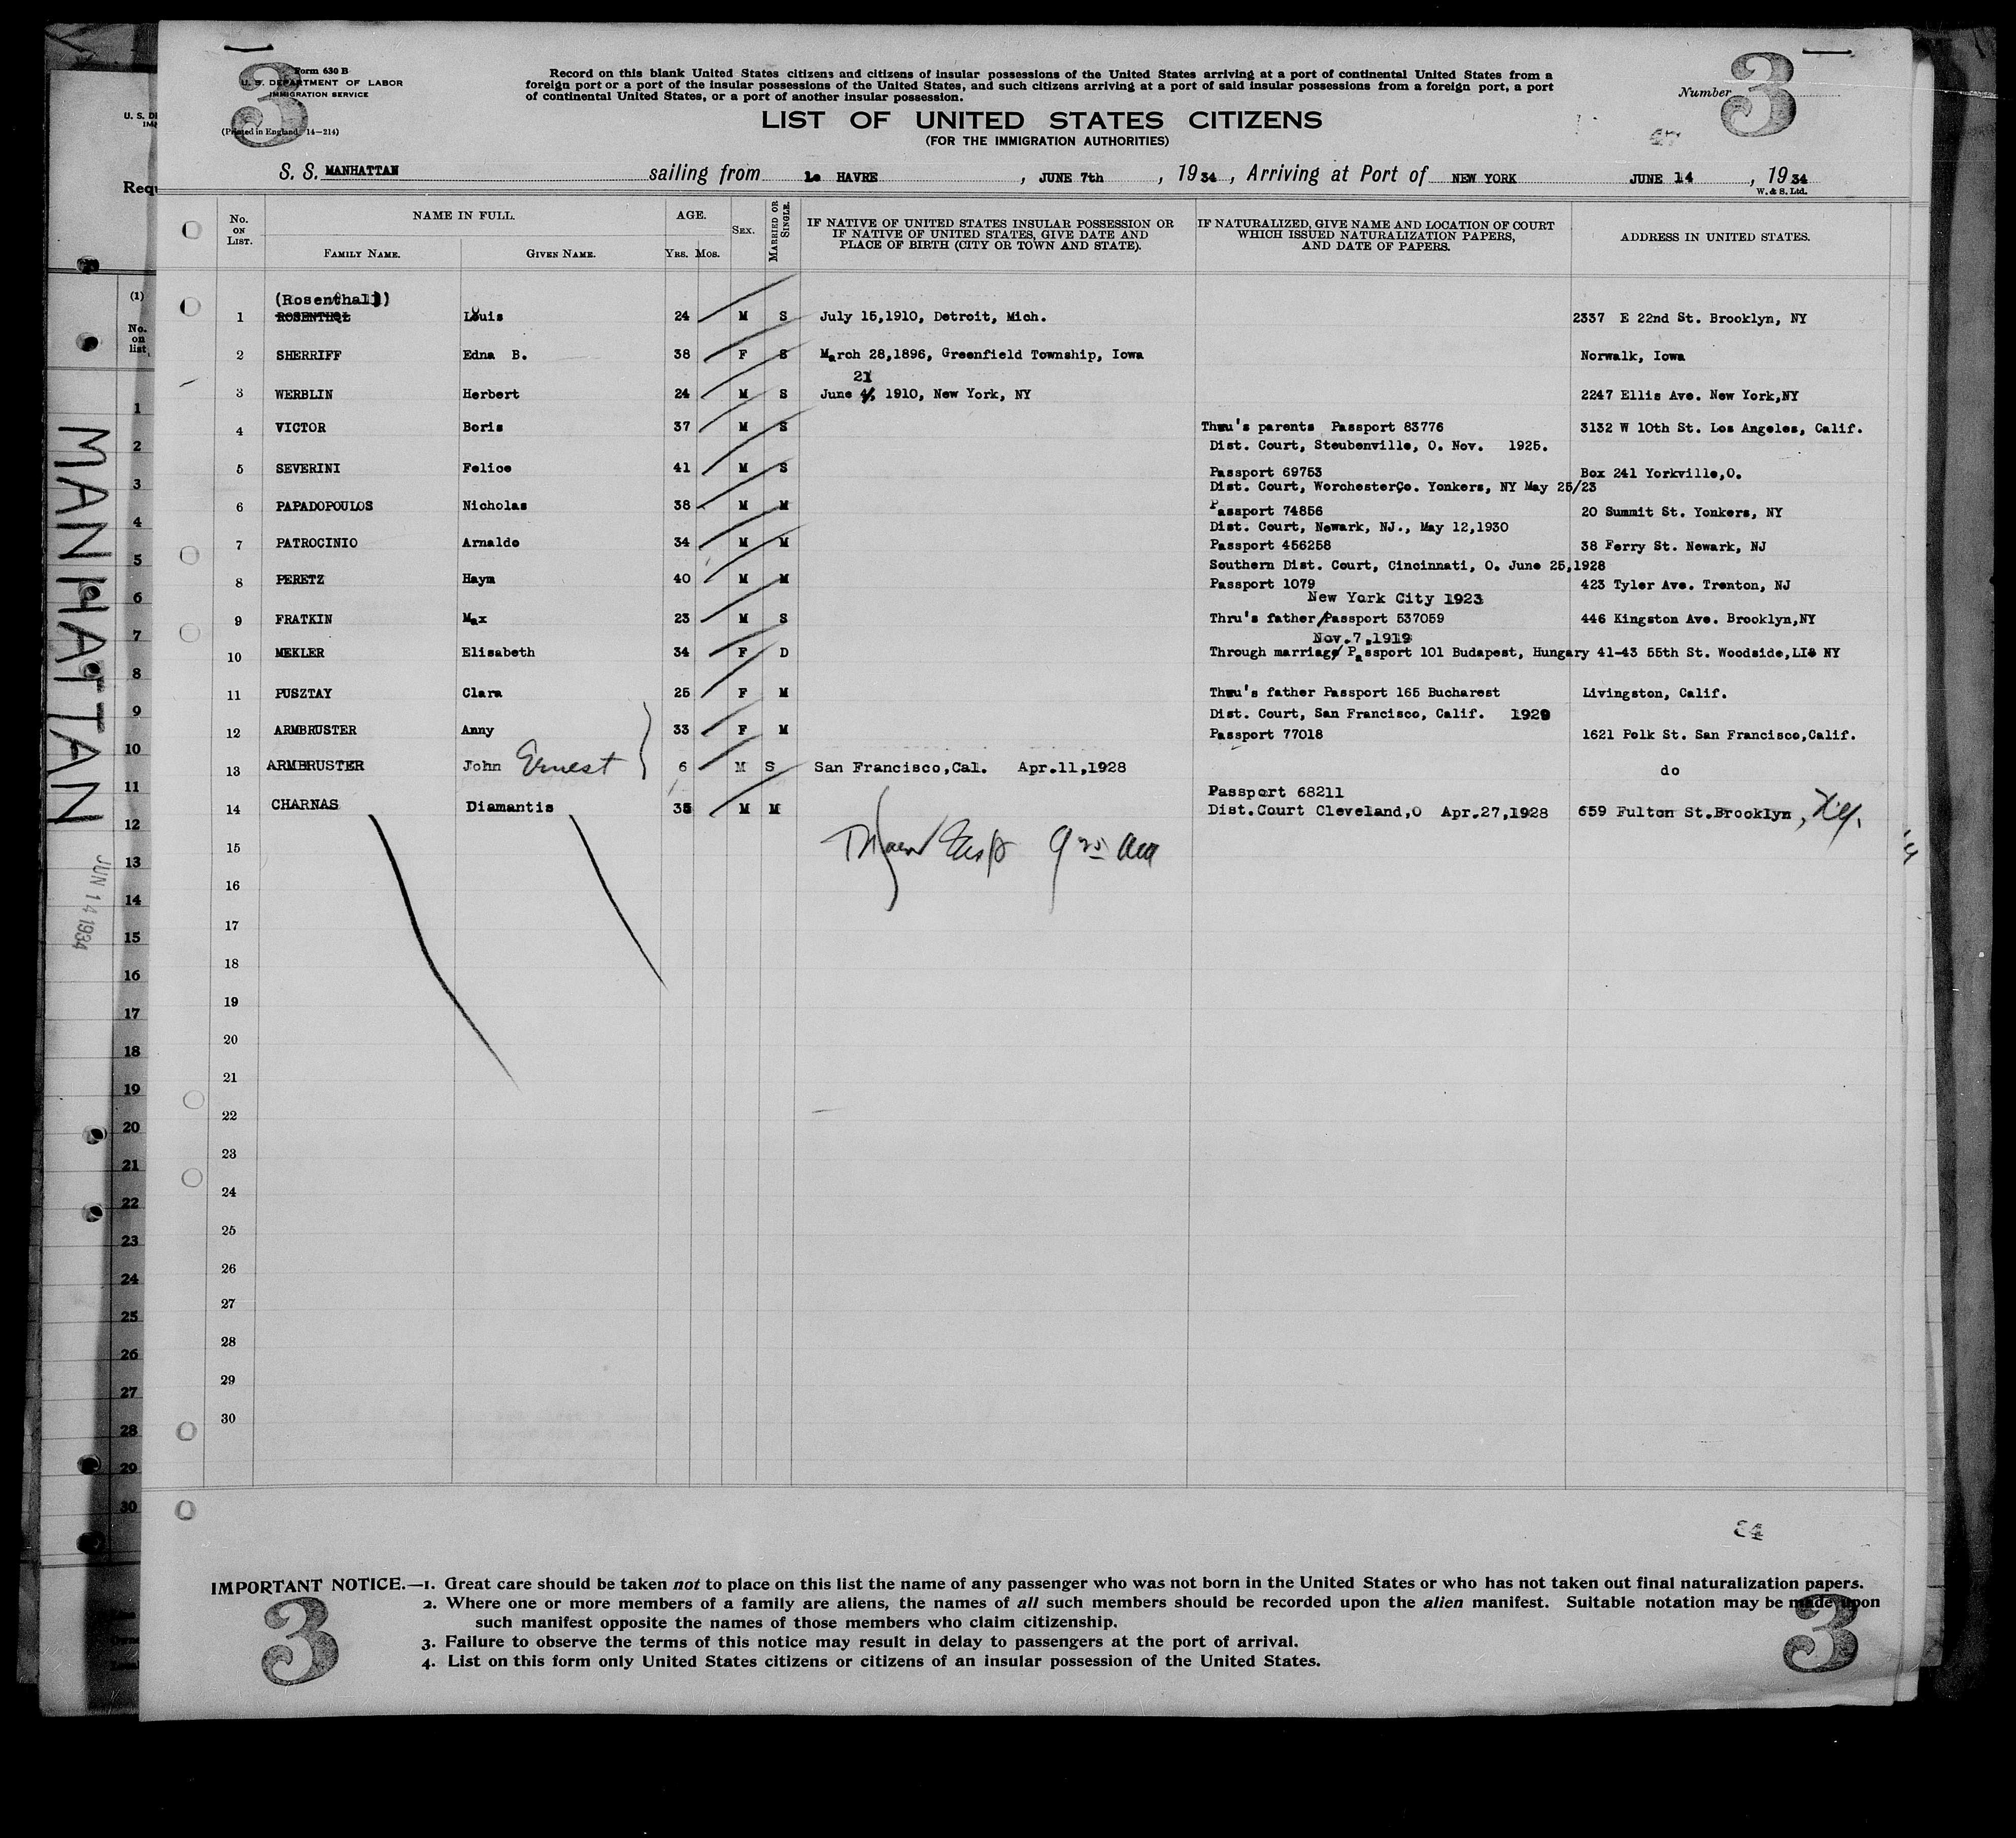 3
Form 630 B
U. S. DEPARTMENT OF LABOR
IMMIGRATION SERVICE
(Printed in England, 14—214)
Record on this blank United States citizens and citizens of insular possessions of the United States arriving at a port of continental United States from a
foreign port or a port of the insular possessions of the United States, and such citizens arriving at a port of said insular possessions from a foreign port, a port
of continental United States, or a port of another insular possession.
Number
3
LIST OF UNITED STATES CITIZENS
(FOR THE IMMIGRATION AUTHORITIES)
S. S. MANHATTAN sailing from le HAVRE, JUNE 7th, 1934, Arriving at Port of NEW YORK JUNE 14, 1934
W. & S. Ltd.
No. ON LIST. NAME IN FULL. FAMILY NAME. GIVEN NAME. AGE. YRS. MOS. SEX. MARRIED OR SINGLE. IF NATIVE OF UNITED STATES INSULAR POSSESSION OR IF NATIVE OF UNITED STATES, GIVE DATE AND PLACE OF BIRTH (CITY OR TOWN AND STATE). IF NATURALIZED, GIVE NAME AND LOCATION OF COURT WHICH ISSUED NATURALIZATION PAPERS, AND DATE OF PAPERS. ADDRESS IN UNITED STATES.
(Rosenthal)
1 ROSENTHOL Louis 24 M S July 15,1910, Detroit, Mich. 2337 E 22nd St. Brooklyn, NY
2 SHERRIFF Edna B. 38 F S March 28,1896, Greenfield Township, Iowa Norwalk, Iowa
21
3 WERBLIN Herbert 24 M S June 4, 1910, New York, NY 2247 Ellis Ave. New York,NY
4 VICTOR Boris 37 M S Thru's parents Passport 83776 3132 W 10th St. Los Angeles, Calif.
Dist. Court, Steubenville, O. Nov. 1925.
5 SEVERINI Felice 41 M S Passport 69753 Box 241 Yorkville,O.
Dist. Court, WorchesterCo. Yonkers, NY May 25/23
6 PAPADOPOULOS Nicholas 38 M M Passport 74856 20 Summit St. Yonkers, NY
Dist. Court, Newark, NJ., May 12,1930
7 PATROCINIO Arnaldo 34 M M Passport 456258 38 Ferry St. Newark, NJ
Southern Dist. Court, Cincinnati, O. June 25,1928
8 PERETZ Haym 40 M M Passport 1079 423 Tyler Ave. Trenton, NJ
New York City 1923
9 FRATKIN Max 23 M S Thru's father/Passport 537059 446 Kingston Ave. Brooklyn,NY
Nov.7,1919
10 MEKLER Elisabeth 34 F D Through marriage/ Passport 101 Budapest, Hungary 41-43 55th St. Woodside,LI NY
11 PUSZTAY Clara 25 F M Thru's father Passport 165 Bucharest Livingston, Calif.
Dist. Court, San Francisco, Calif. 1929
12 ARMBRUSTER Anny 33 F M Passport 77018 1621 Polk St. San Francisco,Calif.
13 ARMBRUSTER John Ernest 6 M S San Francisco,Cal. Apr.11,1928 do
Passport 68211
14 CHARNAS Diamantis 35 M M Dist.Court Cleveland,O Apr.27,1928 659 Fulton St.Brooklyn, N.Y.
15
16
17
18
19
20
21
22
23
24
25
26
27
28
29
30
IMPORTANT NOTICE.—1. Great care should be taken not to place on this list the name of any passenger who was not born in the United States or who has not taken out final naturalization papers.
2. Where one or more members of a family are aliens, the names of all such members should be recorded upon the alien manifest. Suitable notation may be made upon
such manifest opposite the names of those members who claim citizenship.
3. Failure to observe the terms of this notice may result in delay to passengers at the port of arrival.
4. List on this form only United States citizens or citizens of an insular possession of the United States.
3
3
U. S. D
Requ
(1)
No. on list
1
2
3
4
5
6
7
8
9
10
11
12
13
14
15
16
17
18
19
20
21
22
23
24
25
26
27
28
29
30
MANHATTAN
JUN 14 1934